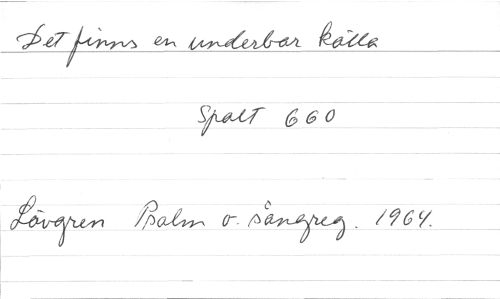 Det finns en underbar källa
Spalt 660
Lövgren Psalm o. sångreg. 1964.